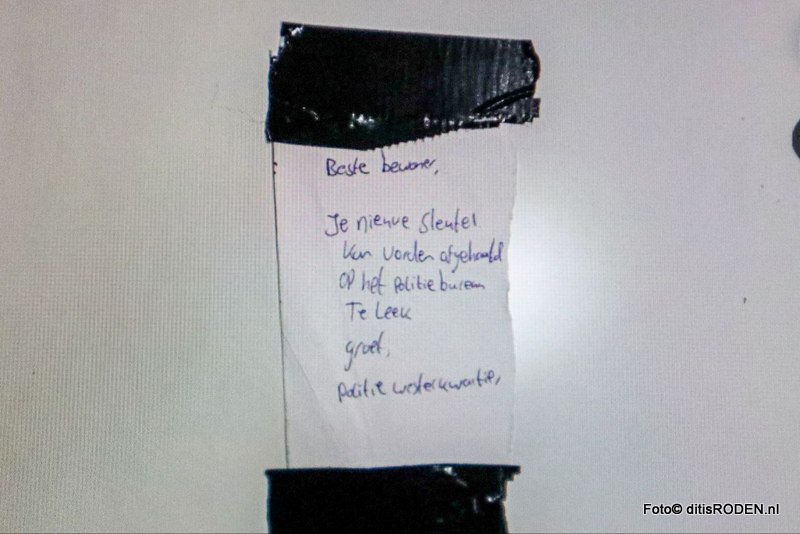 Beste bewoner,
Je nieuwe sleutel
kan worden afgehaald
op het politiebureau
Te Leek
groet,
politie westerkwartier,
Foto© ditisRODEN.nl